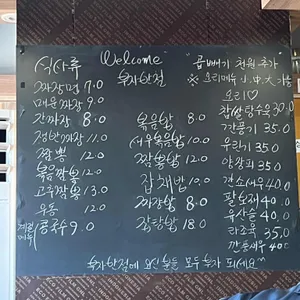 식사류
짜장면 7.0
매운짜장 9.0
간짜장 8.0
쟁반짜장 11.0
짬뽕 12.0
볶음짬뽕 12.0
고추짬뽕 13.0
우동 12.0
콩국수 9.0
Welcome
부자반점
볶음밥 8.0
새우볶음밥
짬뽕밥 12.0
잡채밥 10.0
짜장밥 8.0
잡탕밥 18.0
곱빼기 천원 추가
※ 요리메뉴 小.中.大 가능
요리♡
찹쌀탕수육 30.0
깐풍기 35.0
유린기 35.0
양장피 35.0
깐쇼새우 40.0
팔보채 40.0
유산슬 40.0
라조육 35.0
깐풍새우 40.0
부자반점에 오신분들 모두 부자 되세요~